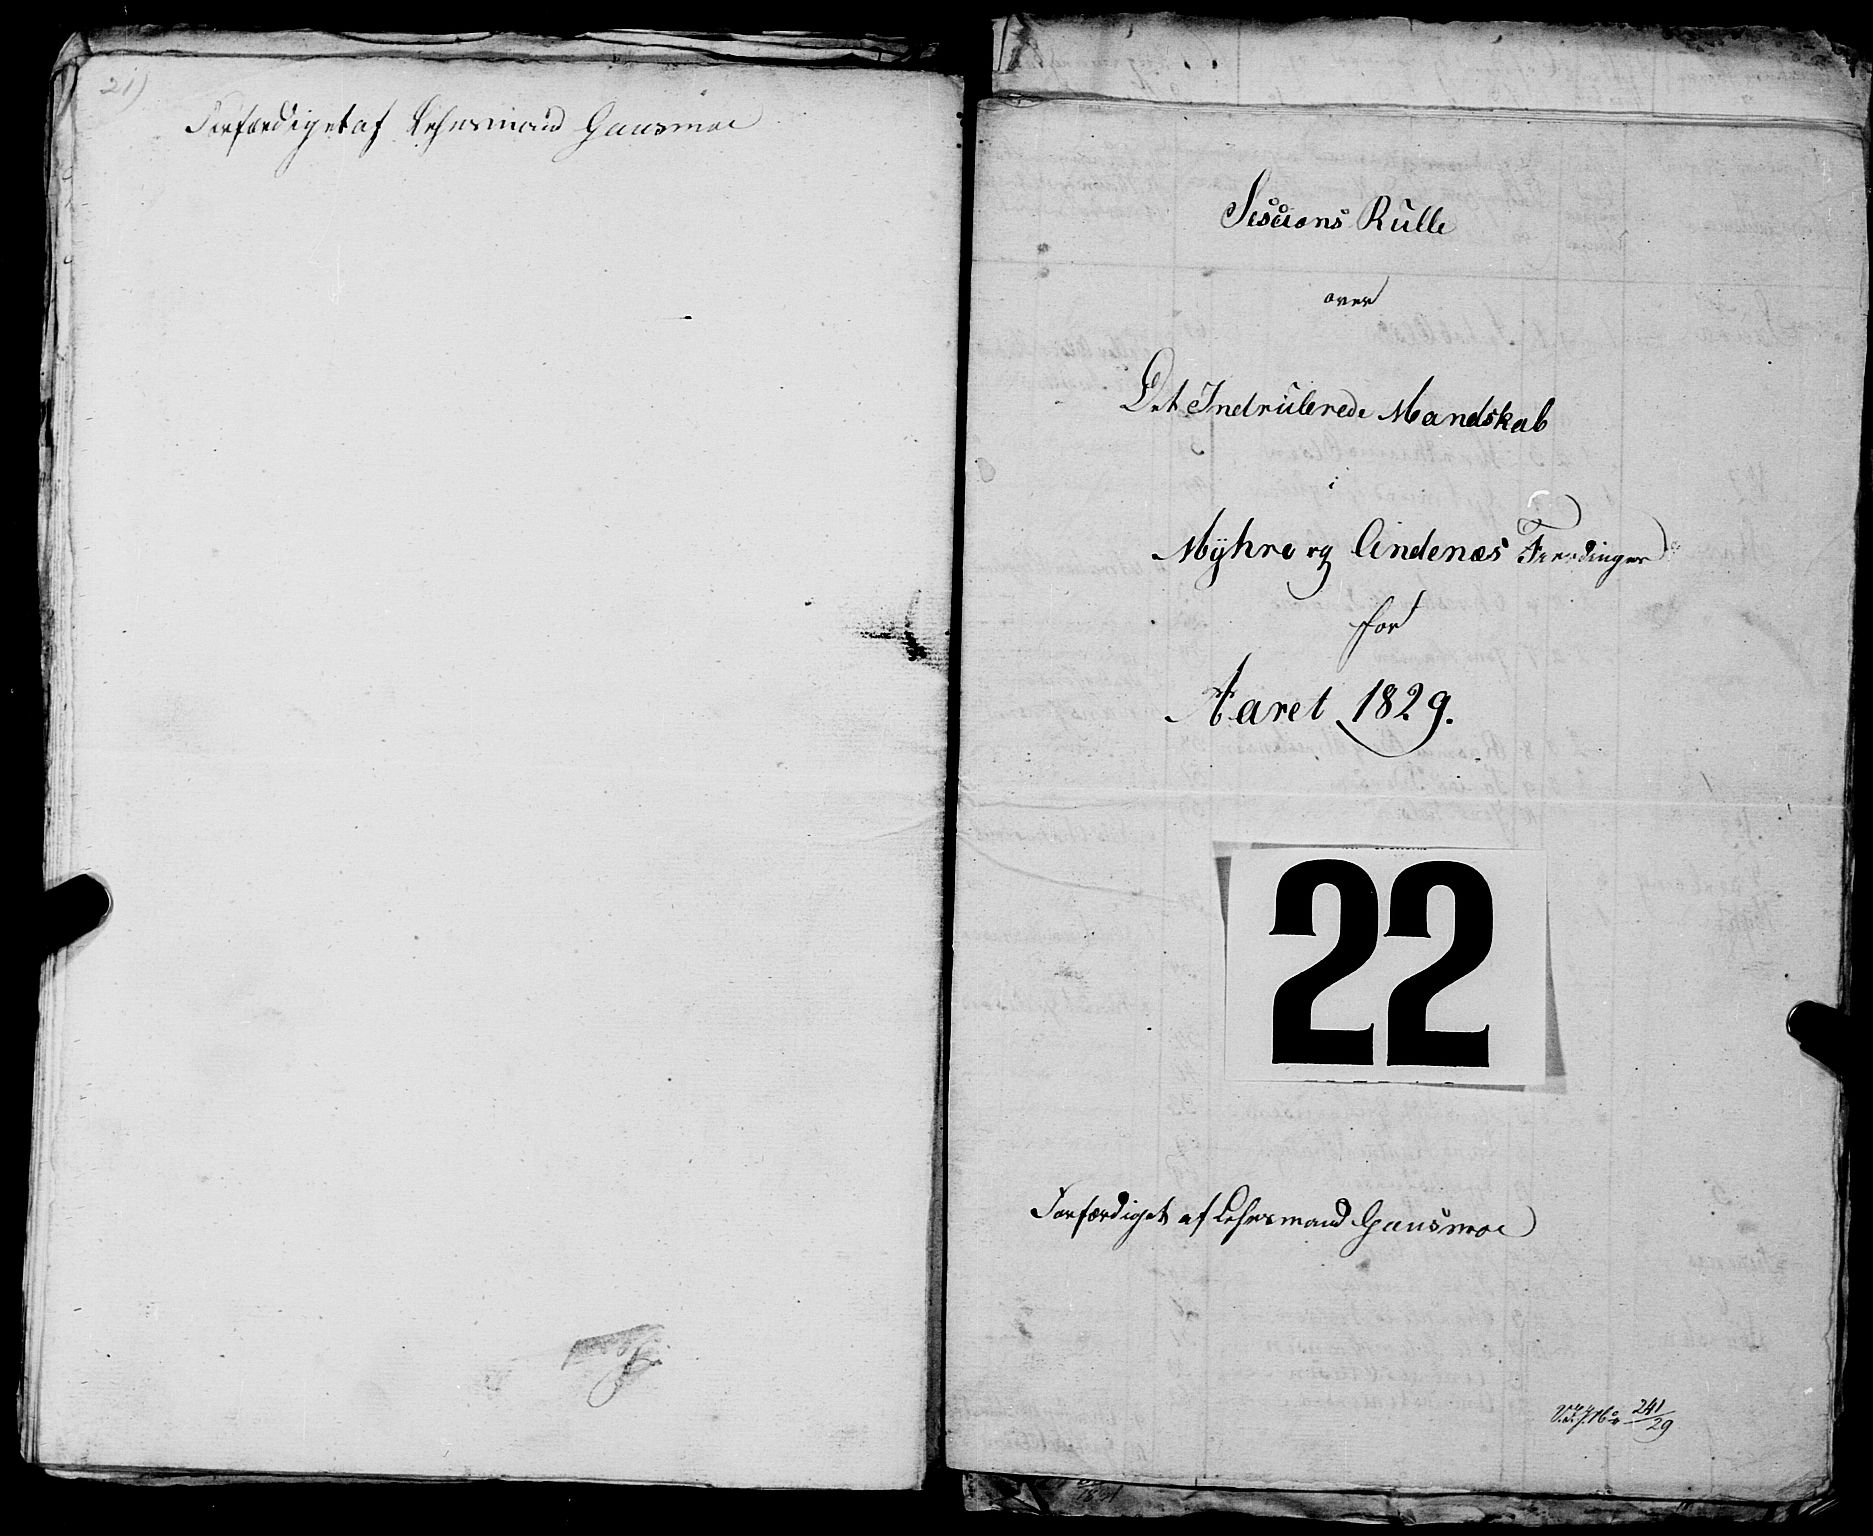 21)
Forfærdiget af Lehnsmand Gausmoe
Sessions Rulle
over
Det Indrulerede Mandskab
i
Myhre og Andenæs Fierdinger
for
Aaret 1829.
22
Forfærdiget af Lehnsmand Gausmoe
241/29